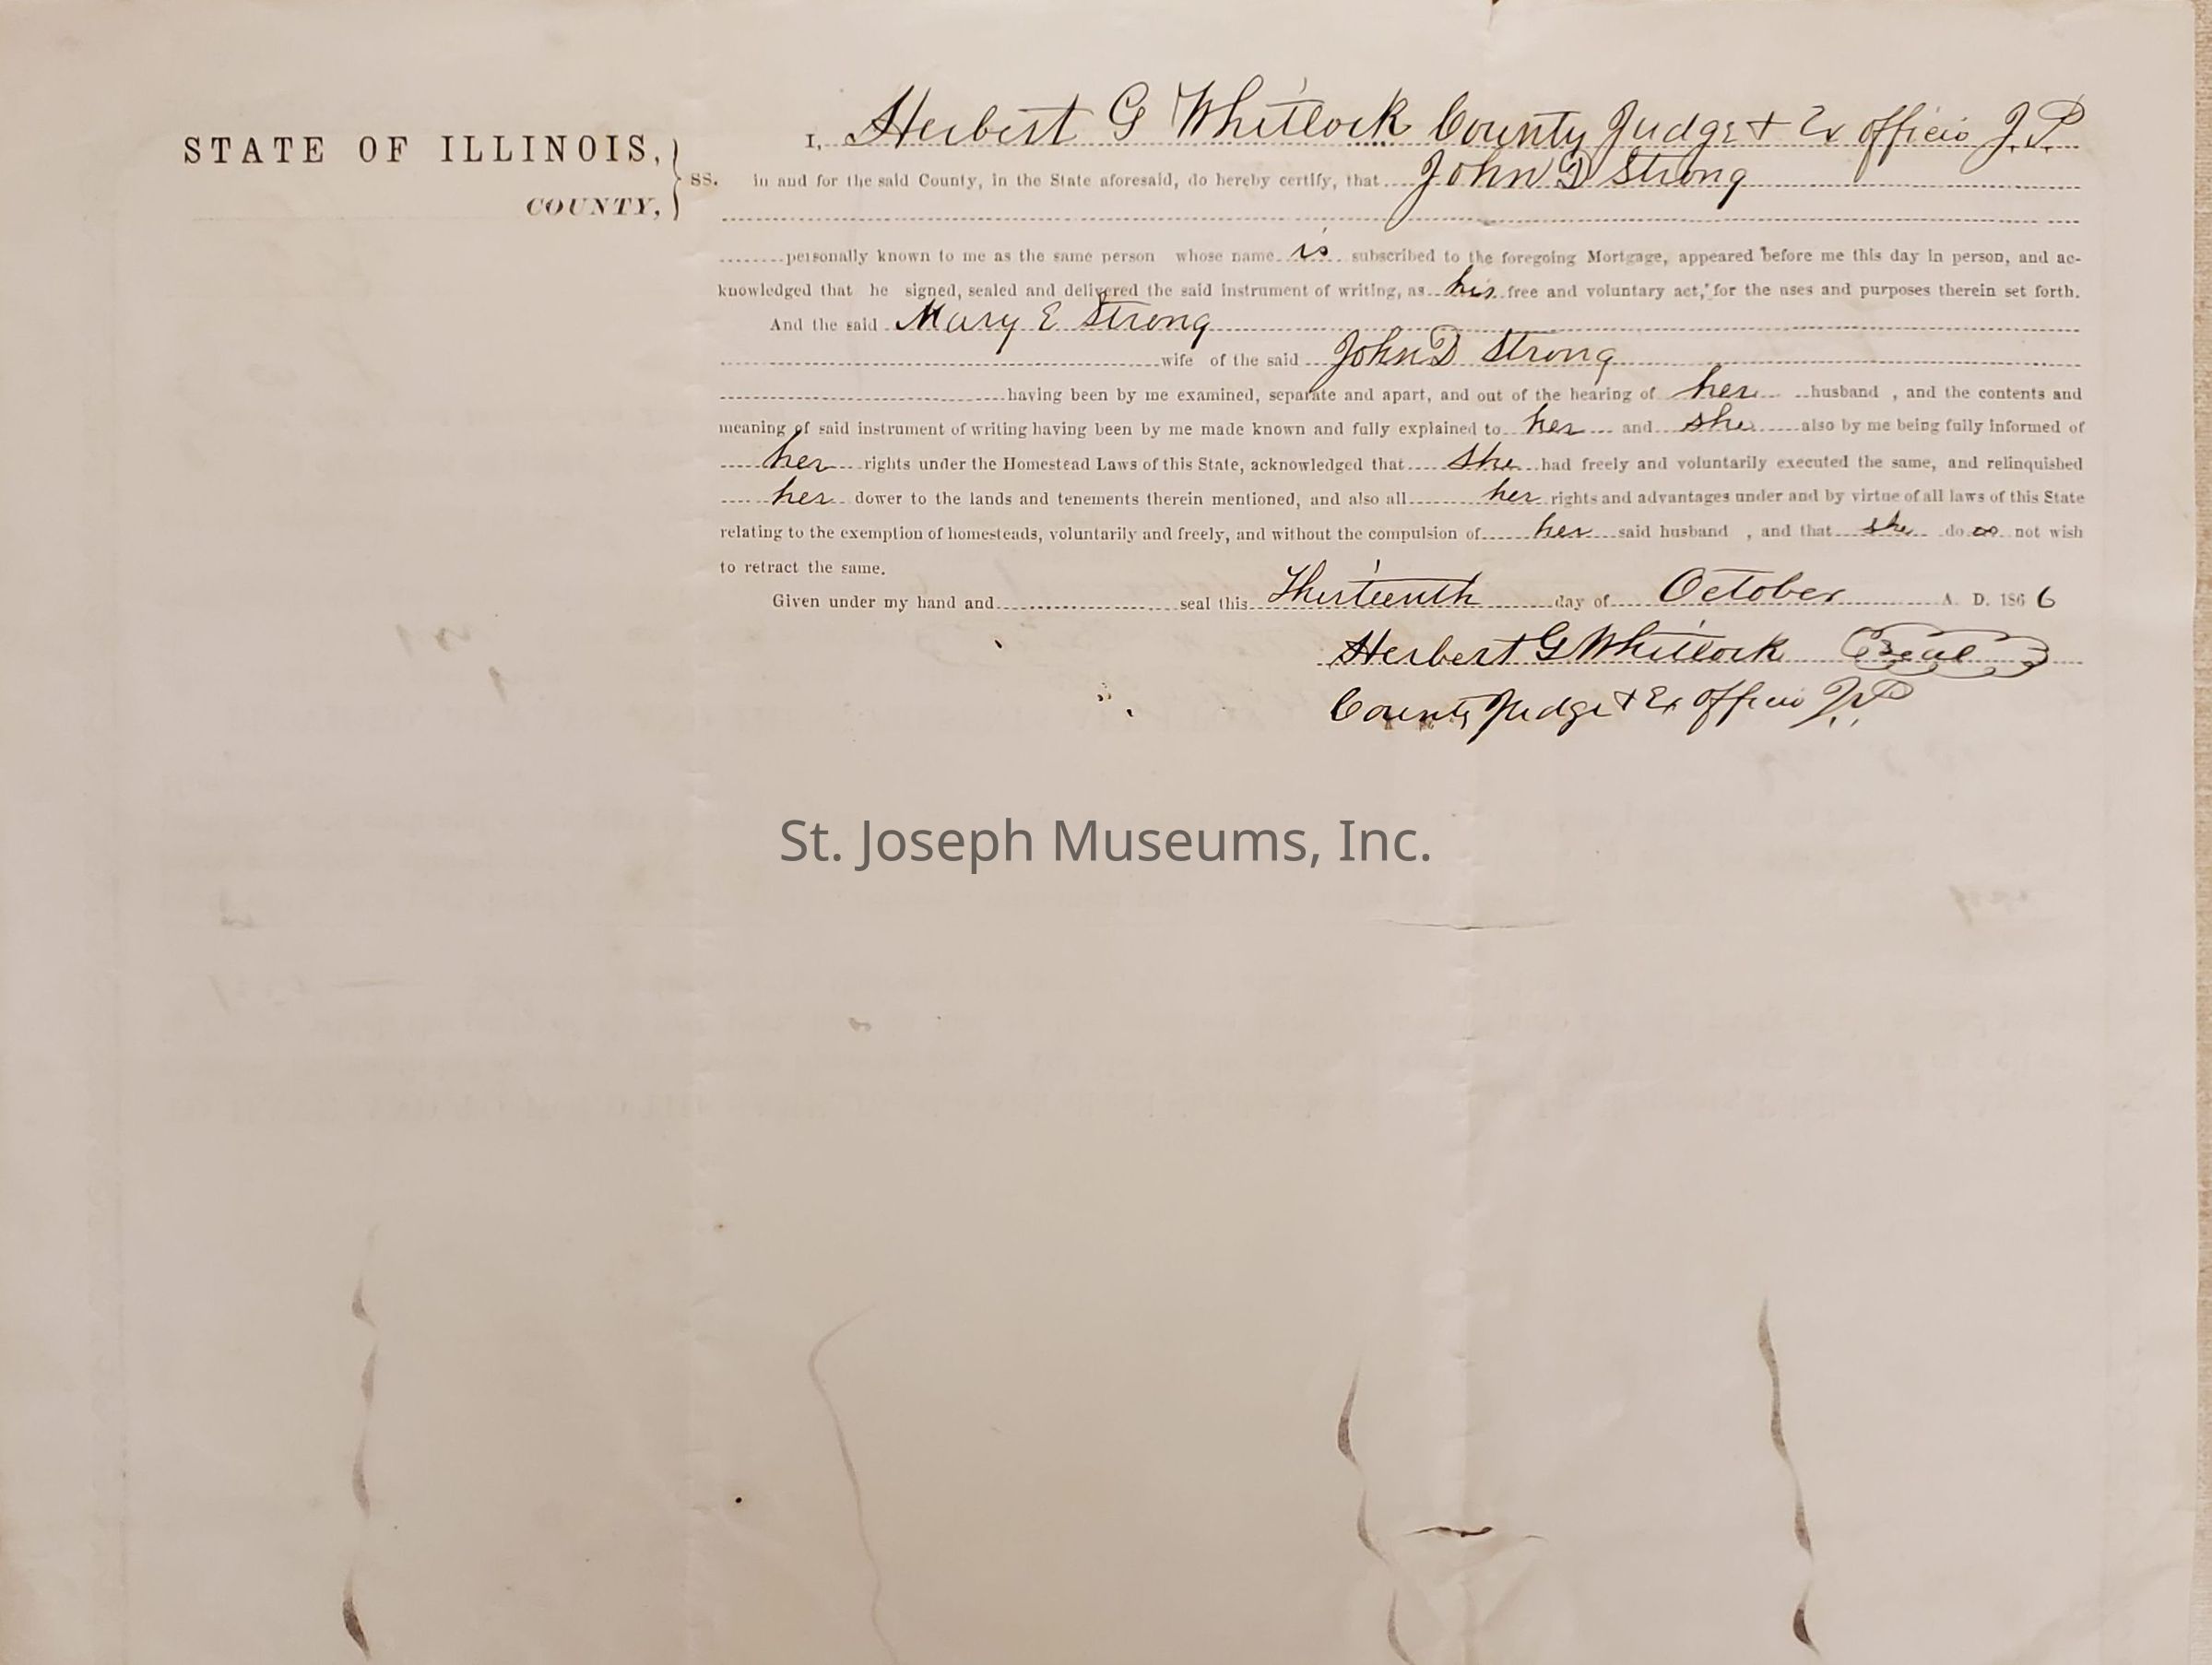 STATE OF ILLINOIS,
COUNTY, } ss.
I, Herbert G Whitlock County Judge & Ex officio J.P.
in and for the said County, in the State aforesaid, do hereby certify, that John D Strong
personally known to me as the same person whose name is subscribed to the foregoing Mortgage, appeared before me this day in person, and ac-
knowledged that he signed, sealed and delivered the said instrument of writing, as his free and voluntary act, for the uses and purposes therein set forth.
And the said Mary E Strong
wife of the said John D Strong
having been by me examined, separate and apart, and out of the hearing of her husband , and the contents and
meaning of said instrument of writing having been by me made known and fully explained to her and she also by me being fully informed of
her rights under the Homestead Laws of this State, acknowledged that she had freely and voluntarily executed the same, and relinquished
her dower to the lands and tenements therein mentioned, and also all her rights and advantages under and by virtue of all laws of this State
relating to the exemption of homesteads, voluntarily and freely, and without the compulsion of her said husband , and that she does not wish
to retract the same.
Given under my hand and seal this Thirteenth day of October A. D. 1866
Herbert G Whitlock Seal
County Judge & Ex officio J.P.
St. Joseph Museums, Inc.